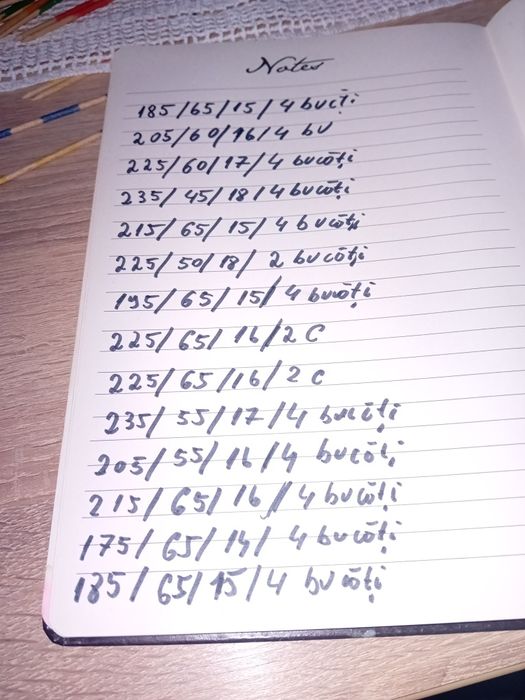 Notes
185/65/15/4 bucți
205/60/16/4 bu
225/60/17/4 bucōți
235/45/18/4 bucōți
215/65/15/4 bucōți
225/50/18/ 2 bucōți
195/65/15/4 bucōți
225/65/16/2 C
225/65/16/2 C
235/55/17/4 bucōți
205/55/16/4 bucōți
215/65/16/4 bucōți
175/65/14/ 4 bucōți
185/65/15/4 bucōți